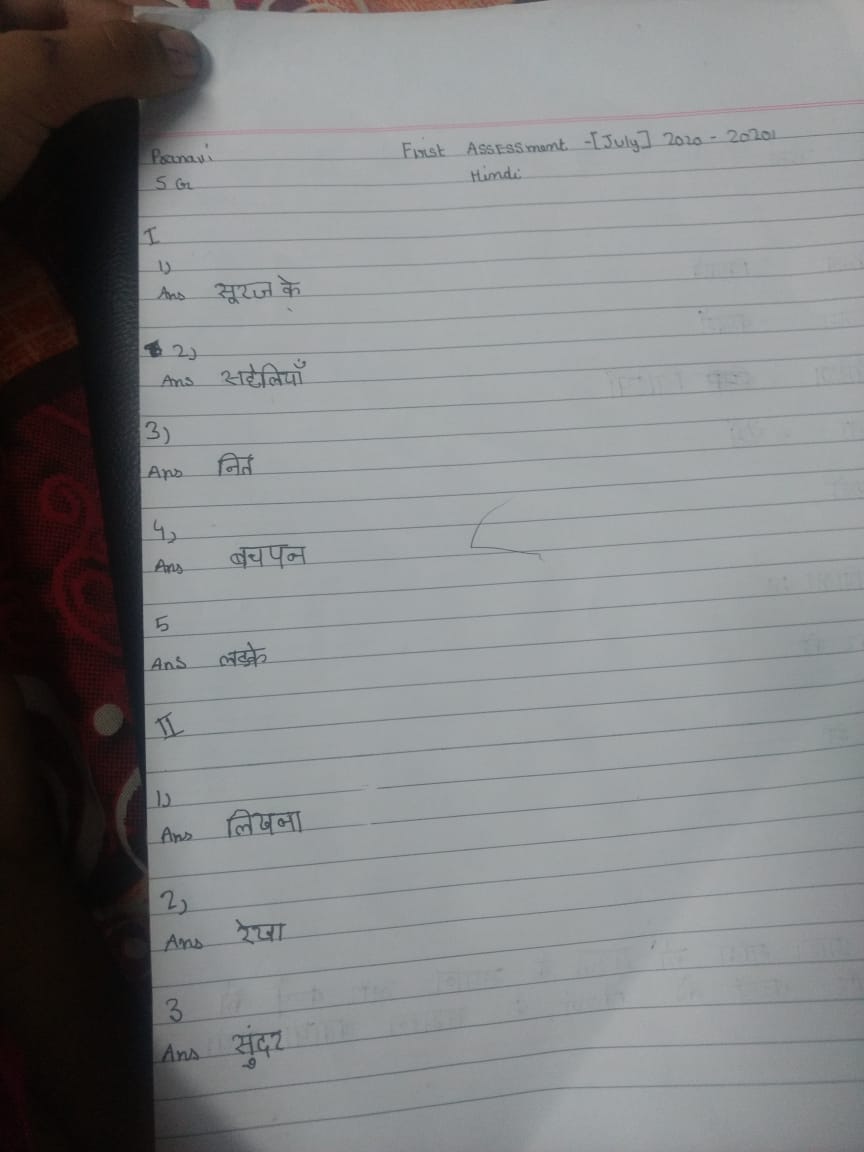 Pranavi First Assessment -[July] 2020 - 20201
5 G Hindi
I
1)
Ans सूरज के
2)
Ans सहेलियाँ
3)
Ans नित
4)
Ans बचपन
5
Ans लडके
II
1)
Ans लिखना
2)
Ans रेखा
3
Ans सुंदर